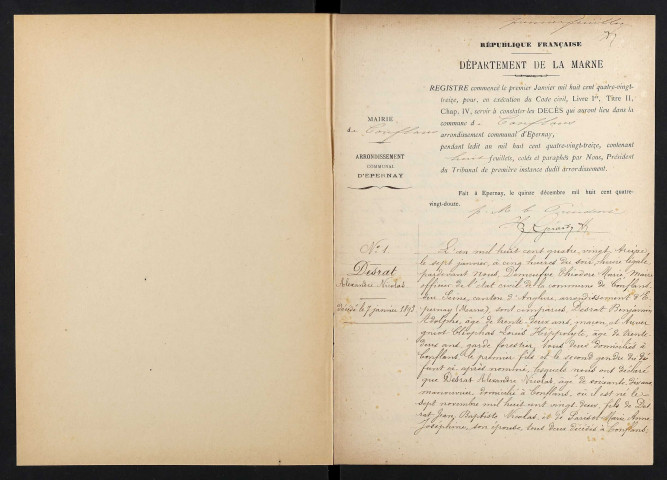 RÉPUBLIQUE FRANÇAISE
DÉPARTEMENT DE LA MARNE
REGISTRE commencé le premier Janvier mil huit cent quatre-vingt-
treize, pour, en exécution du Code civil, Livre Ier, Titre II,
Chap. IV, servir à constater les DÉCÈS qui auront lieu dans la
commune d Conflans
arrondissement communal d'Epernay,
pendant ledit an mil huit cent quatre-vingt-treize, contenant
feuillets, cotés et paraphés par Nous, Président
du Tribunal de première instance dudit arrondissement.
Fait à Epernay, le quinze décembre mil huit cent quatre-
vingt-douze.
MAIRIE
de Conflans
ARRONDISSEMENT
COMMUNAL
D'EPERNAY
N° 1.
Desrat
Alexandre Nicolas
décédé le 7 janvier 1893
L'an mil huit cent quatre vingt treize
le sept janvier, à cinq heures du soir, heure légale
pardevant Nous, Théodore Marie, Maire
officier de l'état civil de la commune de Conflans
sur Seine, canton d'Anglure, arrondissement d'E
pernay (Marne), sont comparus Desrat Benjamin
Adolphe, âgé de trente deux ans, maçon, et
Cléophas Louis Hippolyte, âgé de trente
deux ans, garde forestier, tous deux domiciliés à
Conflans, le premier fils et le second gendre du dé
funt ci après nommé, lesquels nous ont déclaré
que Desrat Alexandre Nicolas, âgé de soixante dix ans
manouvrier, domicilié à Conflans, où il est né le
sept novembre mil huit cent vingt deux, fils de Des
rat Jean Baptiste Nicolas, et de Marie Anne
Joséphine, son épouse, tous deux décédés à Conflans,